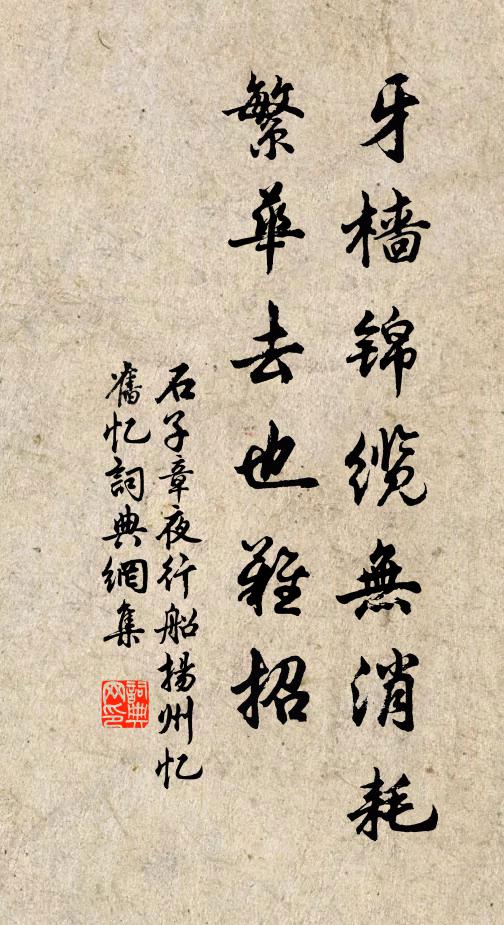 牙檣锦缆無消耗
繁華去也難招
石子章夜行船揚州忆
舊忆詞典網集
詞典網印